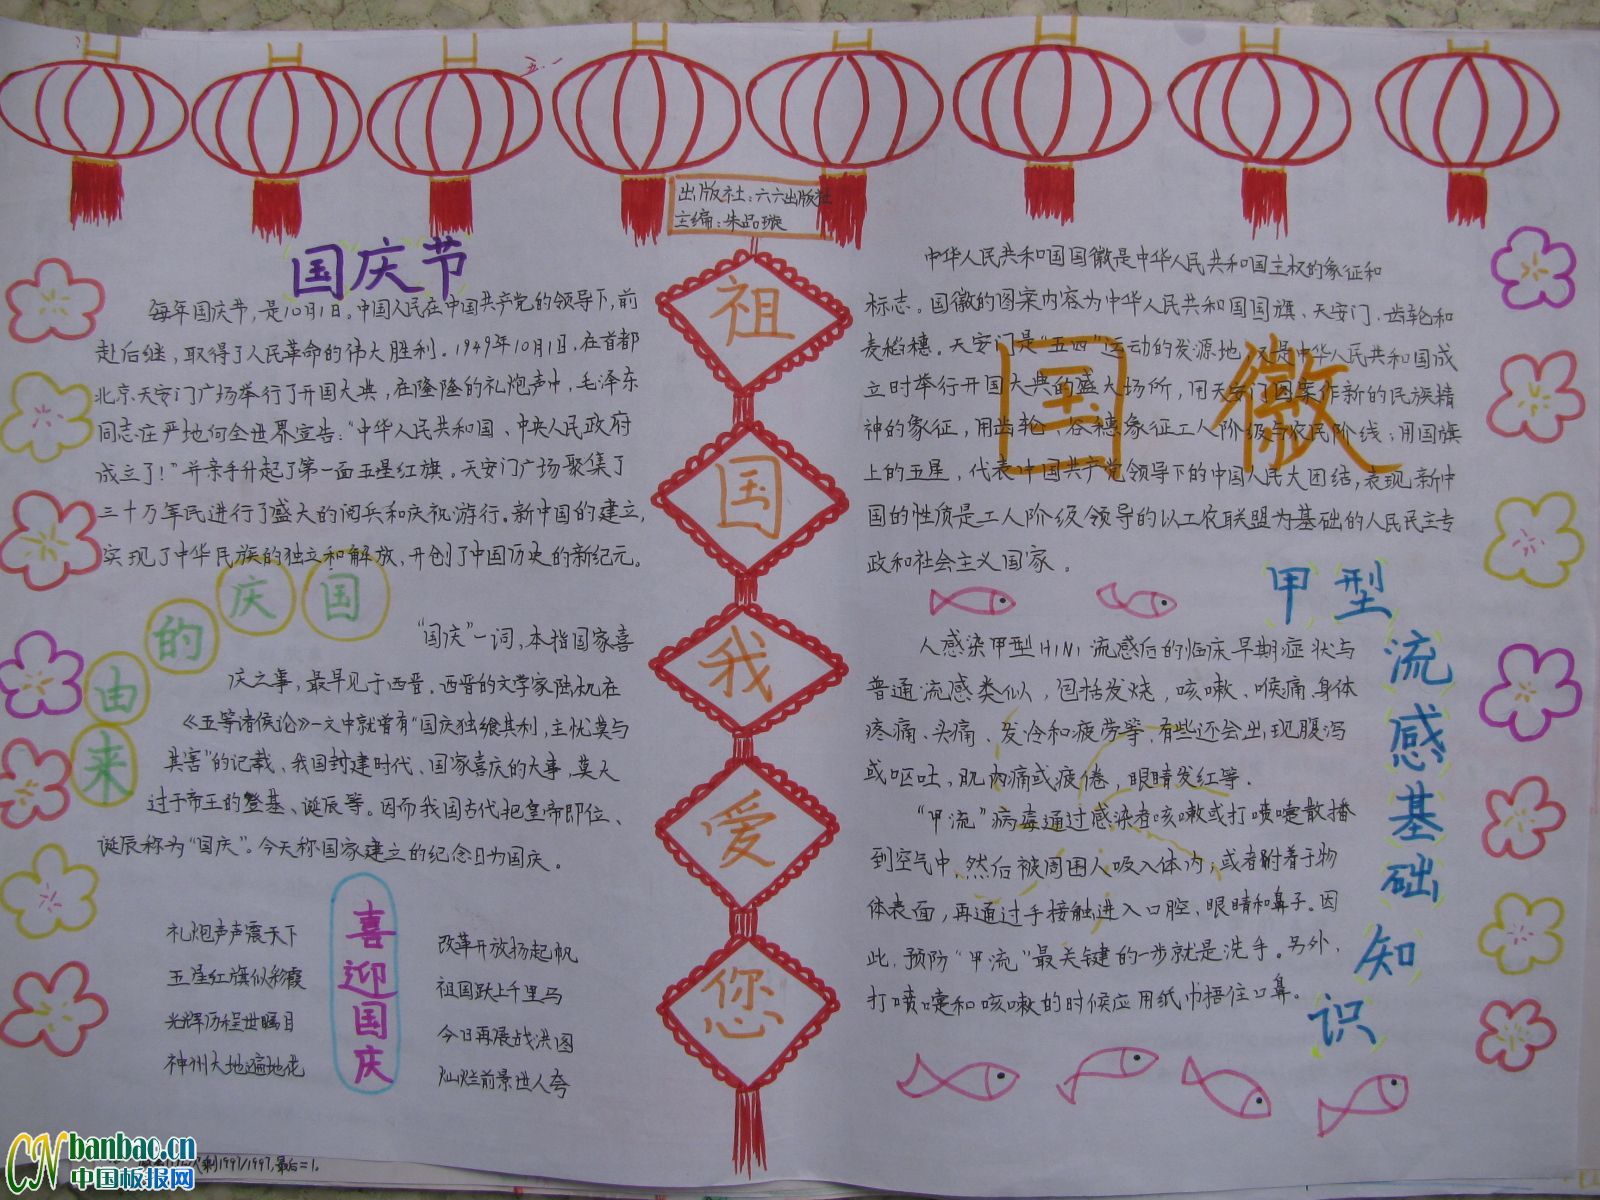 出版社：六六出版社
主编：朱品璇
国庆节
每年国庆节，是10月1日。中国人民在中国共产党的领导下，前
赴后继，取得了人民革命的伟大胜利。1949年10月1日，在首都
北京天安门广场举行了开国大典，在隆隆的礼炮声中，毛泽东
同志庄严地向全世界宣告："中华人民共和国、中央人民政府
成立了！"并亲手升起了第一面五星红旗。天安门广场聚集了
三十万军民进行了盛大的阅兵和庆祝游行。新中国的建立，
实现了中华民族的独立和解放，开创了中国历史的新纪元。
国庆的由来
"国庆"一词，本指国家喜
庆之事，最早见于西晋。西晋的文学家陆机在
《五等诸侯论》一文中就曾有"国庆独飨其利，主忧莫与
其害"的记载、我国封建时代、国家喜庆的大事，莫大
过于帝王的登基、诞辰等。因而我国古代把皇帝即位、
诞辰称为"国庆"。今天称国家建立的纪念日为国庆。
喜迎国庆
礼炮声声震天下
五星红旗似彩霞
光辉历程世瞩目
神州大地遍地花
改革开放扬起帆
祖国跃上千里马
今日再展战洪图
灿烂前景进人夸
祖
国
我
爱
您
国徽
中华人民共和国国徽是中华人民共和国主权的象征和
标志。国徽的图案内容为中华人民共和国国旗、天安门、齿轮和
麦稻穗。天安门是"五四"运动的发源地，又是中华人民共和国成
立时举行开国大典的盛大场所，用天安门图案作新的民族精
神的象征，用齿轮、谷穗象征工人阶级与农民阶级；用国旗
上的五星，代表中国共产党领导下的中国人民大团结，表现新中
国的性质是工人阶级领导的以工农联盟为基础的人民民主专
政和社会主义国家。
甲型流感基础知识
人感染甲型H1N1流感后的临床早期症状与
普通流感类似，包括发烧，咳嗽、喉痛、身体
疼痛、头痛、发冷和疲劳等，有些还会出现腹泻
或呕吐，肌肉痛或疲倦，眼睛发红等．
"甲流"病毒通过感染者咳嗽或打喷嚏散播
到空气中，然后被周围人吸入体内；或者附着于物
体表面，再通过手接触进入口腔、眼睛和鼻子。因
此，预防"甲流"最关键的一步就是洗手。另外，
打喷嚏和咳嗽的时候应用纸巾捂住口鼻。
CN banbao.cn
中国板报网
剩1997/1997,最后=1.